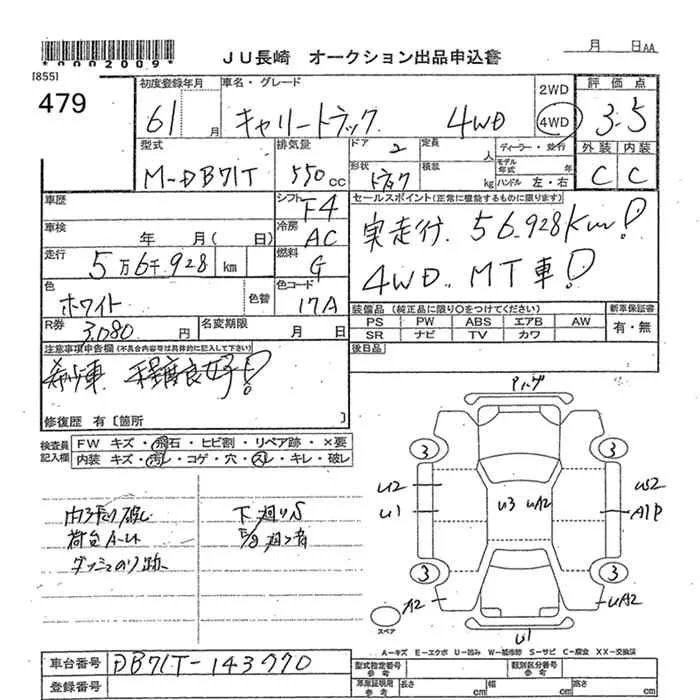 *0000*2009*
JU長崎 オークション出品申込書
月 日AA
[855]
479
初度登録年月
61 月
車名・グレード
キャリートラック 4WD
2WD
4WD
評価点
3.5
外装 内装
C C
型式
M-DB71T
排気量
550 cc
ドア 2
定員 人
形状 トラック
積載 kg
ディーラー・並行
モデル年式 年
ハンドル 左・右
車歴
シフト F4
車検 年 月(日)
冷房 AC
走行 5万6千928 km
燃料 G
色 ホワイト 色替
色コード 17A
R券 3,080 円
名変期限 月 日
セールスポイント(正常に機能するものに限ります)
実走行 56,928Km!
4WD MT車!
装備品(純正品に限り○をつけてください)
PS PW ABS エアB AW
SR ナビ TV カワ
新車保証書
有・無
後日品
注意事項申告欄(不具合内容等は具体的に記入して下さい)
希少車 程度良好!
修復歴 有〔箇所 〕
検査員記入欄
FW キズ・飛石・ヒビ割・リペア跡・×要
内装 キズ・汚レ・コゲ・穴・スレ・キレ・破レ
荷台A.U
ダッシュのり跡
下廻りS
Pバンパ
3 3
U2 U3 UA2 W2
U1 A1P
3 3
A2 UA2
U1
スペア
A-キズ E-エクボ U-凹み W-補修跡 S-サビ C-腐食 XX-交換済
車台番号 DB71T-143770
登録番号
型式指定番号 参考
類別区分番号 参考
車庫証明用 参考
長さ cm 幅 cm 高さ cm